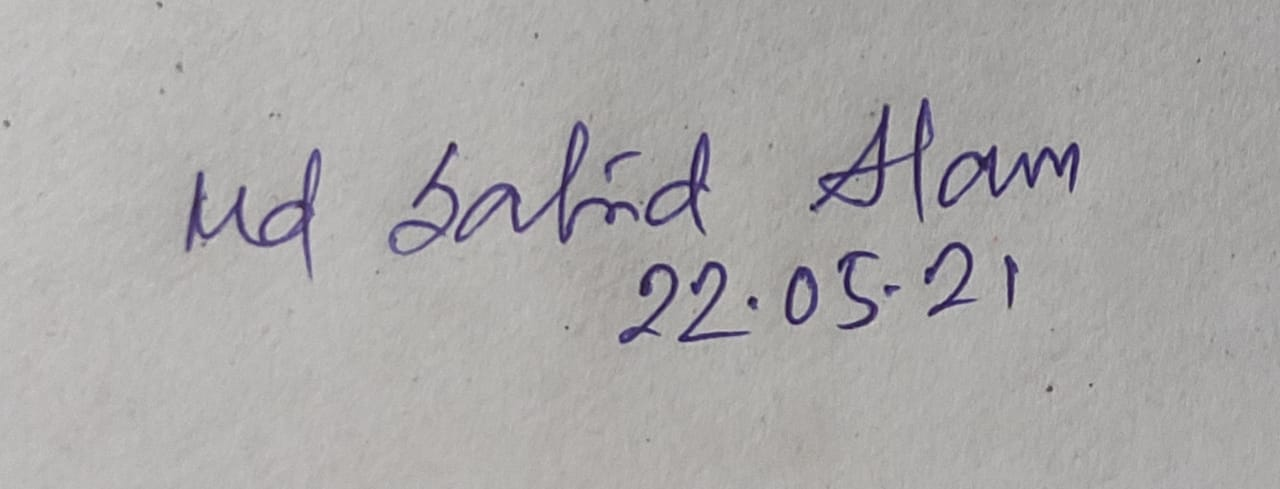 Md Sahid Alam
22.05.21